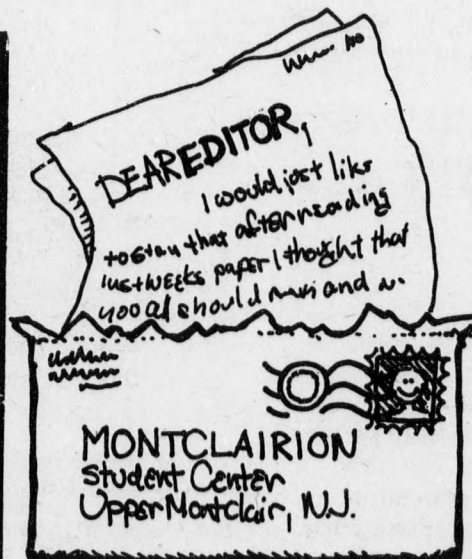 DEAR EDITOR,
I would just like
to say that after reading
last weeks paper I thought that
you all should
MONTCLAIRION
Student Center
Upper Montclair, N.J.